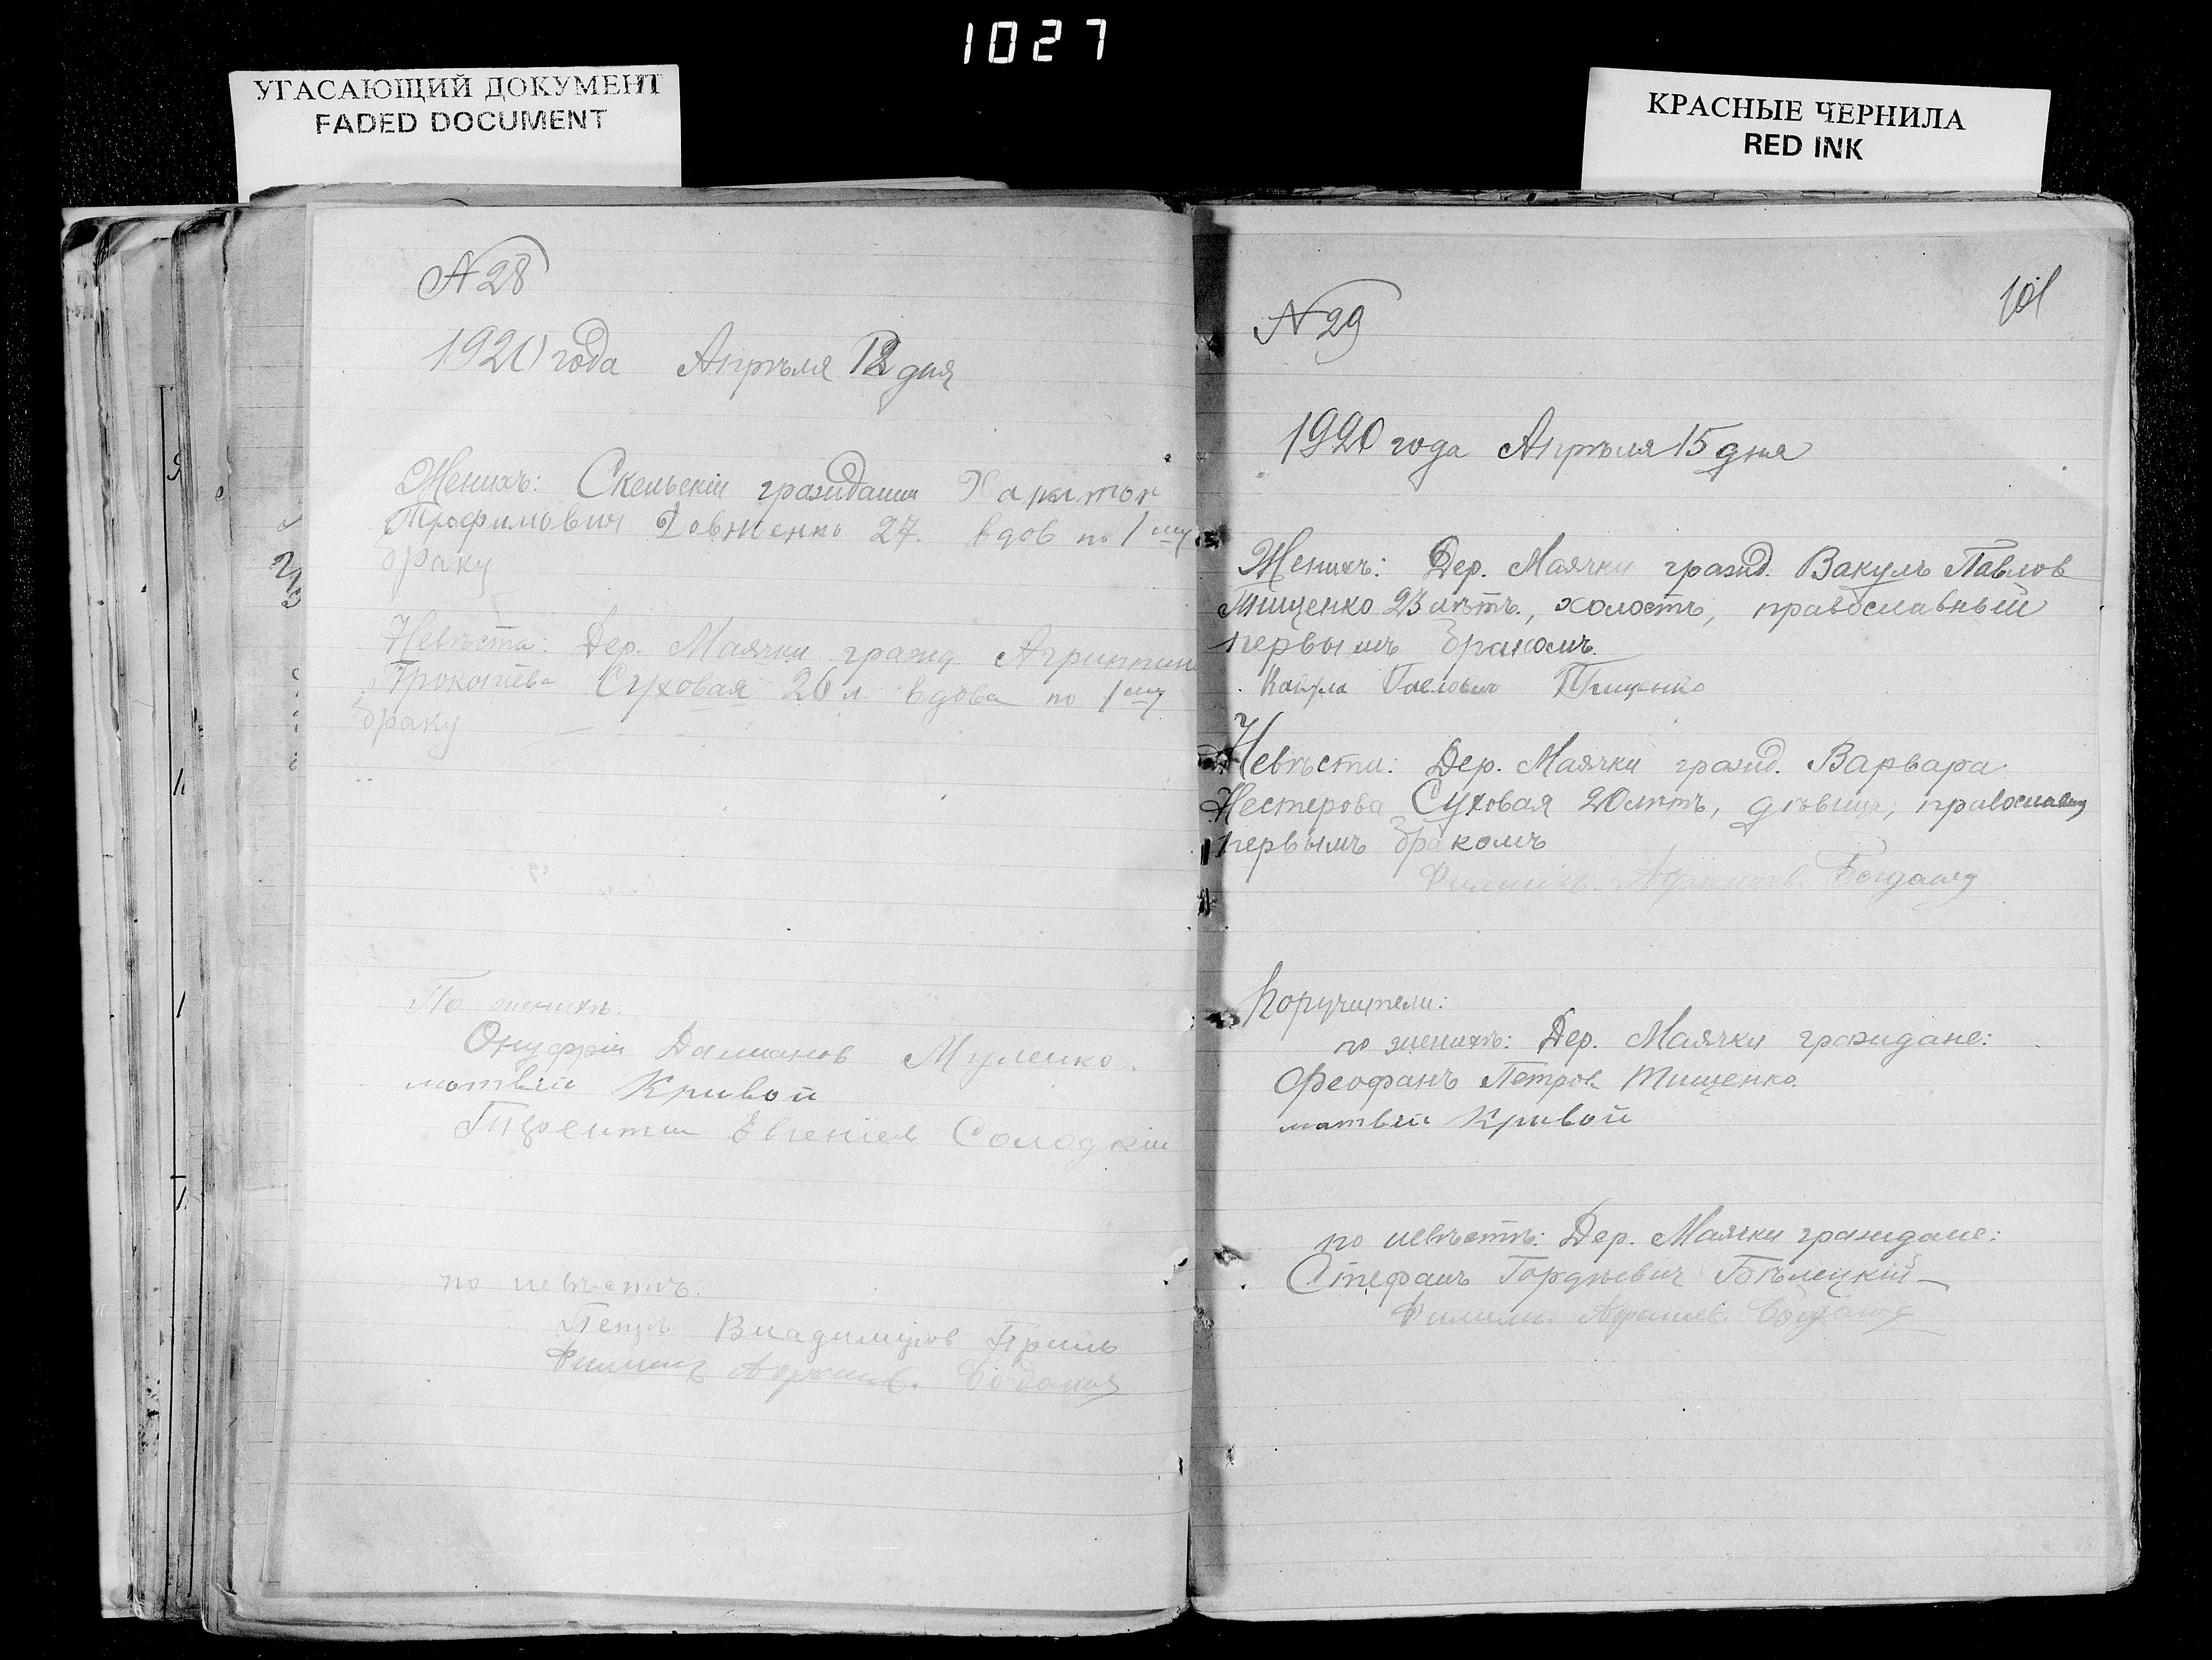 1027
УГАСАЮЩИЙ ДОКУМЕНТ
FADED DOCUMENT
КРАСНЫЕ ЧЕРНИЛА
RED INK
№ 28
1920 года Апрѣля 12 дня
Женихъ: Скельскій гражданин Харитон
Трофимович Довженко 27. вдов по 1му
браку
Невѣста: Дер. Маячки гражд. Агриппин
Прокопіева Суховая 26 л. вдова по 1му
браку
По женихѣ:
Онуфрій Дамианов
матвѣй Кривой
Терентий Евгеніев Солодкій
по невѣстѣ:
Владимиров
Богданя
101
№ 29
1920 года Апрѣля 15 дня
Женихъ: Дер. Маячки гражд. Вакулъ Павлов
Тищенко 23 лѣтъ., холостъ, православный
первымъ бракомъ.
Вакула Павлович Тищенко
Невѣста: Дер. Маячки гражд. Варвара
Нестерова Суховая 20 лѣтъ, дѣвица, православн
первымъ бракомъ
Богданя
Поручители:
по женихѣ: Дер. Маячки граждане:
Феофанъ Петров Тищенко
матвѣй Кривой
по невѣстѣ: Дер. Маячки граждане:
Стефанъ Гордѣевич Бѣлецкій